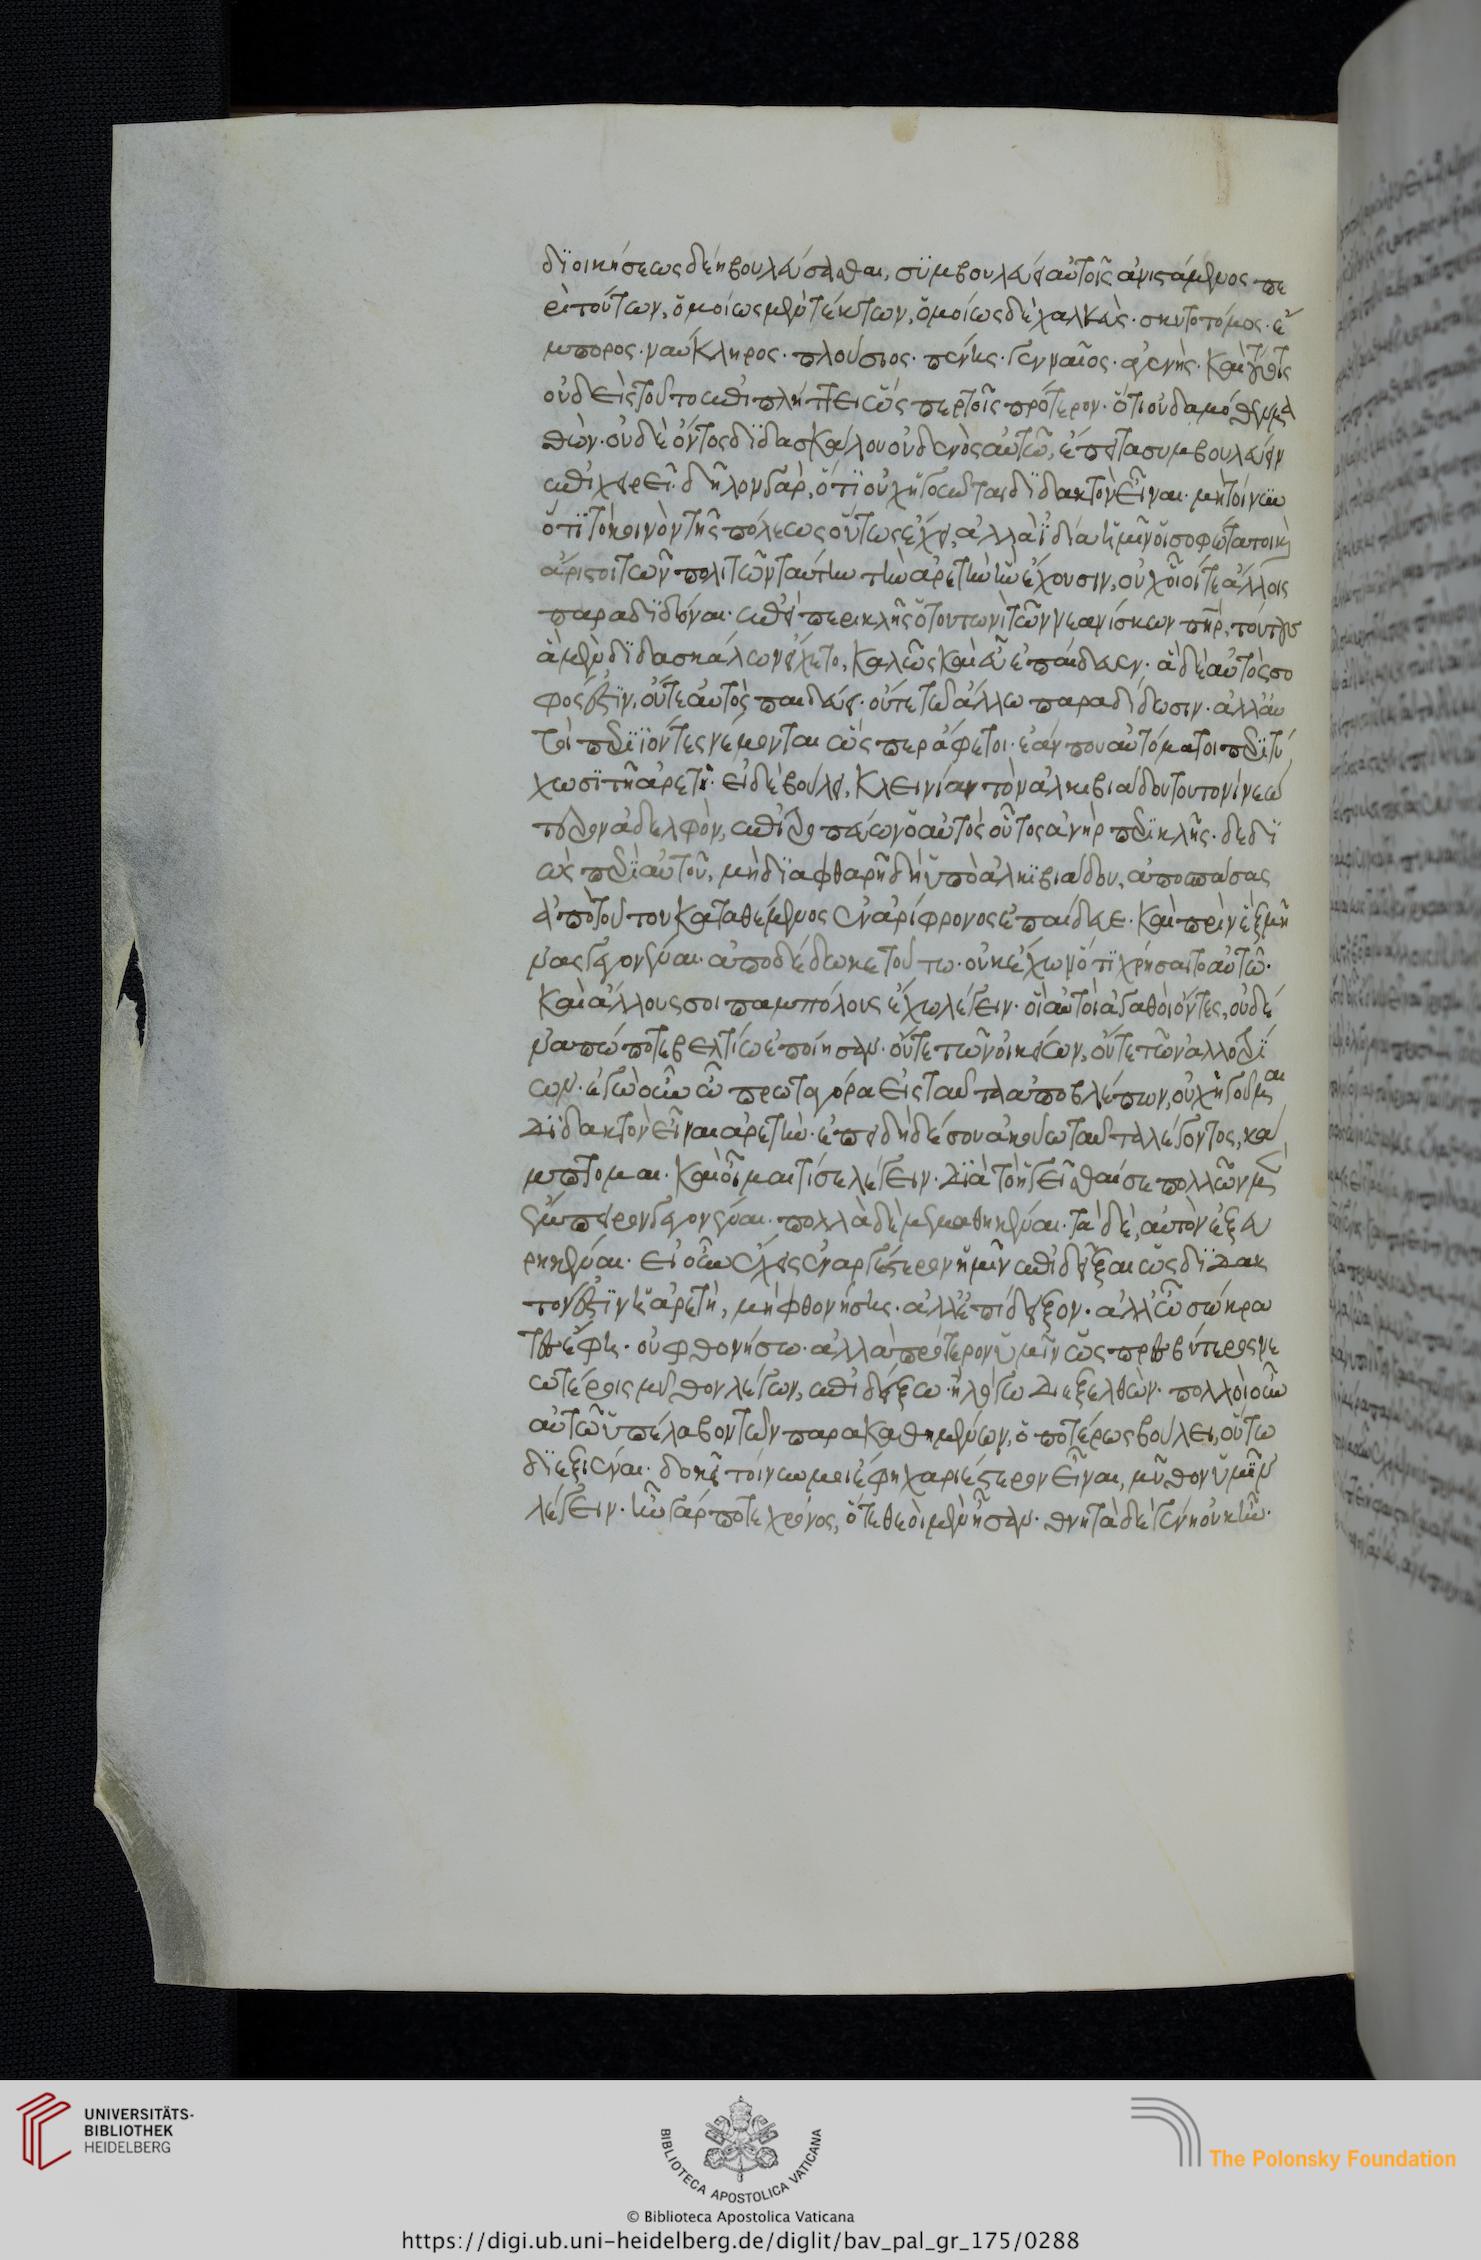 διοικήσεως δέη βουλεύσασθαι, συμβουλεύει αὐτοῖς ἀνιστάμενος πε
ρὶ τούτων, ὁμοίως μὲν τέκτων, ὁμοίως δὲ χαλκεὺς· σκυτοτόμος· ἔ
μπορος· ναύκληρος· πλούσιος· πένης· γενναῖος· ἀγενής· καὶ τούτοις
οὐδεὶς τοῦτο ἐπιπλήττει ὥσπερ τοῖς πρότερον· ὅτι οὐδαμόθεν μα
θὼν· οὐδὲ ὄντος διδασκάλου οὐδενὸς αὐτῶ, ἔπειτα συμβουλεύειν
ἐπιχειρεῖ· δῆλον γὰρ, ὅτι οὐχ ἡγοῦνται διδακτὸν εἶναι· μὴ τοίνυν
ὅτι τὸ κοινὸν τῆς πόλεως οὕτως ἔχει, ἀλλὰ ἰδία ἡμῖν οἱ σοφώτατοι καὶ
ἄριστοι τῶν πολιτῶν ταύτην τὴν ἀρετὴν ἣν ἔχουσιν, οὐχ οἷοί τε ἄλλοις
παραδιδόναι· ἐπεὶ περικλῆς ὁ τουτωνὶ τῶν νεανίσκων πατὴρ, τούτους
ἃ μὲν διδασκάλων εἴχετο, καλῶς καὶ εὖ ἐπαίδευεν· ἃ δὲ αὐτὸς σο
φός ἐστιν, οὔτε αὐτὸς παιδεύει· οὔτε τω ἄλλω παραδίδωσιν· ἀλλ' αὐ
τοὶ περιϊόντες νέμονται ὥσπερ ἄφετοι· ἐάν που αὐτόματοι περιτύ
χωσι τῆ ἀρετῆ· εἰ δὲ βούλει, κλεινίαν τὸν ἀλκιβιάδου τουτουὶ νεώ
τερον ἀδελφὸν, ἐπιτροπεύων ὁ αὐτὸς οὗτος ἀνὴρ περικλῆς· δεδι
ὼς περὶ αὐτοῦ, μὴ διαφθαρῆ δὴ ὑπὸ ἀλκιβιάδου, ἀποσπάσας
ἀπὸ τούτου καταθέμενος ἐν ἀρίφρονος ἐπαίδευε· καὶ πρὶν ἓξ μῆ
νας γεγονέναι· ἀποδέδωκε τούτω· οὐκ ἔχων ὅτι χρήσαιτο αὐτῶ·
καὶ ἄλλους σοι παμπόλους ἔχω λέγειν· οἳ αὐτοὶ ἀγαθοὶ ὄντες, οὐδέ
να πώποτε βελτίω ἐποίησαν· οὔτε τῶν οἰκείων, οὔτε τῶν ἀλλοτρί
ων· ἐγὼ οὖν ὦ πρωταγόρα εἰς ταῦτα ἀποβλέπων, οὐχ ἡγοῦμαι
διδακτὸν εἶναι ἀρετήν· ἐπειδὴ δέ σου ἀκούω ταῦτα λέγοντος, κά
μπτομαι· καὶ οἶμαι τί σε λέγειν· διὰ τὸ ἡγεῖσθαί σε πολλῶν μὲν
ἔμπειρον γεγονέναι· πολλὰ δὲ μεμαθηκέναι· τὰ δὲ, αὐτὸν ἐξευ
ρηκέναι· εἰ οὖν ἔχεις ἐναργέστερον ἡμῖν ἐπιδεῖξαι ὡς διδακ
τόν ἐστιν ἡ ἀρετή, μὴ φθονήσης· ἀλλ' ἐπίδειξον· ἀλλ' ὦ σώκρα
τες ἔφη· οὐ φθονήσω· ἀλλὰ πρότερον ὑμῖν ὡς πρεσβύτερος νε
ωτέροις μῦθον λέγων, ἐπιδείξω· ἢ λόγω διεξελθὼν· πολλοὶ οὖν
αὐτῶ ὑπέλαβον τῶν παρακαθημένων, ὁποτέρως βούλει, οὕτω
διεξιέναι· δοκεῖ τοίνυν μοι ἔφη χαριέστερον εἶναι, μῦθον ὑμῖν
λέγειν· ἦν γάρ ποτε χρόνος, ὅτε θεοὶ μὲν ἦσαν· θνητὰ δὲ γένη οὐκ ἦν·
UNIVERSITÄTS-
BIBLIOTHEK
HEIDELBERG
BIBLIOTECA APOSTOLICA VATICANA
The Polonsky Foundation
© Biblioteca Apostolica Vaticana
https://digi.ub.uni-heidelberg.de/diglit/bav_pal_gr_175/0288